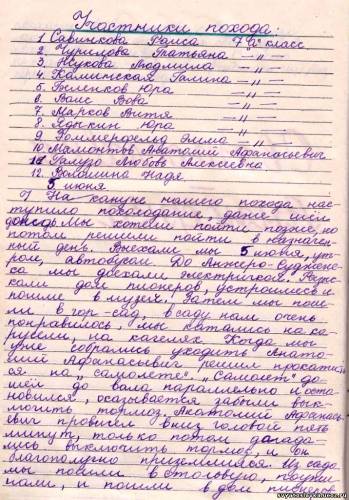 Участники похода:
1. Савинкова Раиса 7"а" класс
2. Чурилова Татьяна — „ —
3. Жукова Людмила — „ —
4. Калиинская Галина — „ —
5. Виленков Юра — „ —
6. Ванс Вова — „ —
7. Марков Витя — „ —
8. Ядыкин Юра — „ —
9. Роммерфельд Эмма — „ —
10. Мамонтов Анатолий Афанасьевич
11. Галузо Любовь Алексеевна
12. Волошина Надя.
5 июня
На кануне нашего похода нас-
тупило похолодание, даже шёл
дождь. Мы хотели пойти позже, но
потом решили пойти в назначен-
ный день. Выехали мы 5 июня, ут-
ром, автобусом. До Анжеро-Судженс-
ка мы доехали электричкой. Разыс-
кали дом пионеров, устроились и
пошли в музей. Затем мы пош-
ли в гор-сад, в саду нам очень
понравилось, мы катались на ка-
русели, на качелях. Когда мы
уже собрались уходить Анато-
лий Афанасьевич решил прокатить-
ся на „самолёте". „Самолёт" до-
шёл до вала параллельно и оста-
новился, оказывается забыли вык-
лючить тормоз. Анатолий Афанась-
евич провисел вниз головой пять
минут, только потом догада-
лись выключить тормоз, и он
благополучно приземлился. Из сада
мы пошли в столовую, поужи-
нали, и пошли в дом пионеров